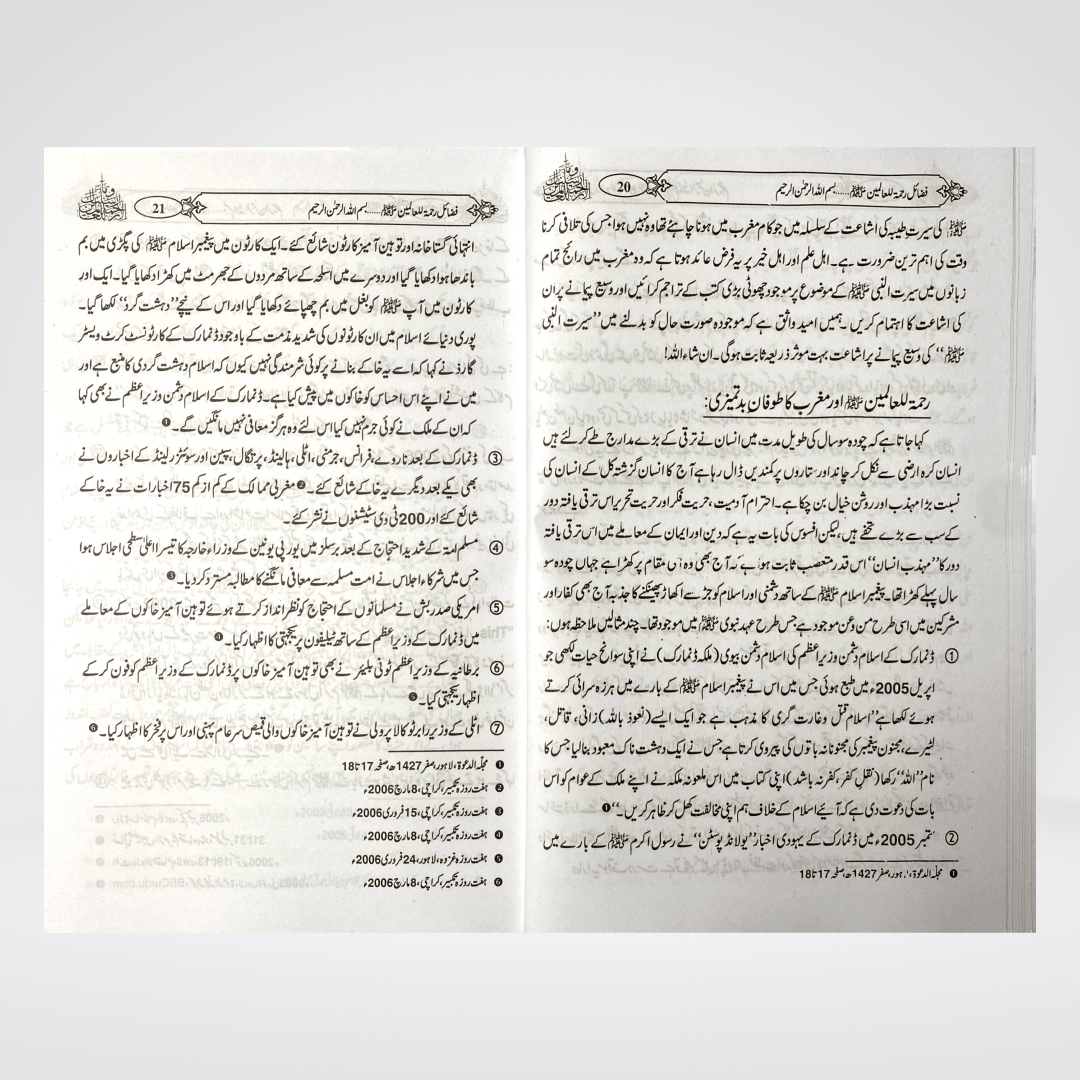 فضائل رحمۃ للعالمین ﷺ......بسم اللہ الرحمٰن الرحیم
20
ﷺ کی سیرت طیبہ کی اشاعت کے سلسلہ میں جو کام مغرب میں ہونا چاہئے تھا وہ نہیں ہوا جس کی تلافی کرنا
وقت کی اہم ترین ضرورت ہے۔ اہل علم اور اہل خیر پر یہ فرض عائد ہوتا ہے کہ وہ مغرب میں رائج تمام
زبانوں میں سیرت النبی ﷺ کے موضوع پر موجود چھوٹی بڑی کتب کے تراجم کرائیں اور وسیع پیمانے پر ان
کی اشاعت کا اہتمام کریں۔ ہمیں امید واثق ہے کہ موجودہ صورت حال کو بدلنے میں ”سیرت النبی
ﷺ“ کی وسیع پیمانے پر اشاعت بہت موثر ذریعہ ثابت ہوگی۔ ان شاء اللہ!
رحمۃ للعالمین ﷺ اور مغرب کا طوفان بدتمیزی:
کہا جاتا ہے کہ چودہ سو سال کی طویل مدت میں انسان نے ترقی کے بڑے مدارج طے کر لئے ہیں
انسان کرہ ارضی سے نکل کر چاند اور ستاروں پر کمندیں ڈال رہا ہے آج کا انسان گزشتہ کل کے انسان کی
نسبت بڑا مہذب اور روشن خیال بن چکا ہے۔ احترام آدمیت، حریت فکر اور حریت تحریر اس ترقی یافتہ دور
کے سب سے بڑے تحفے ہیں، لیکن افسوس کی بات یہ ہے کہ دین اور ایمان کے معاملے میں اس ترقی یافتہ
دور کا ”مہذب انسان“ اس قدر متعصب ثابت ہوا ہے کہ آج بھی وہ اسی مقام پر کھڑا ہے جہاں چودہ سو
سال پہلے کھڑا تھا۔ پیغمبر اسلام ﷺ کے ساتھ دشمنی اور اسلام کو جڑ سے اکھاڑ پھینکنے کا جذبہ آج بھی کفار اور
مشرکین میں اسی طرح من وعن موجود ہے جس طرح عہد نبوی ﷺ میں موجود تھا۔ چند مثالیں ملاحظہ ہوں:
① ڈنمارک کے اسلام دشمن وزیر اعظم کی اسلام دشمن بیوی (ملکہ ڈنمارک) نے اپنی سوانح حیات لکھی جو
اپریل 2005ء میں طبع ہوئی جس میں اس نے پیغمبر اسلام ﷺ کے بارے میں ہرزہ سرائی کرتے
ہوئے لکھا ہے ”اسلام قتل وغارت گری کا مذہب ہے جو ایک ایسے (نعوذ باللہ) زانی، قاتل،
لٹیرے، مجنون پیغمبر کی مجنونانہ باتوں کی پیروی کرتا ہے جس نے ایک دہشت ناک معبود بنا لیا جس کا
نام ”اللہ“ رکھا (نقل کفر، کفر نہ باشد) اپنی کتاب میں اس ملعونہ ملکہ نے اپنے ملک کے عوام کو اس
بات کی دعوت دی ہے کہ آیئے اسلام کے خلاف ہم اپنی مخالفت کھل کر ظاہر کریں۔“❶
② ستمبر 2005ء میں ڈنمارک کے یہودی اخبار ”یولاند پوسٹن“ نے رسول اکرم ﷺ کے بارے میں
❶ مجلہ الدعوۃ، لاہور، صفر 1427ھ، صفحہ 17 تا 18
فضائل رحمۃ للعالمین ﷺ......بسم اللہ الرحمٰن الرحیم
21
انتہائی گستاخانہ اور توہین آمیز کارٹون شائع کئے۔ ایک کارٹون میں پیغمبر اسلام ﷺ کی پگڑی میں بم
باندھا ہوا دکھایا گیا اور دوسرے میں اسلحہ کے ساتھ مردوں کے جھرمٹ میں کھڑا دکھایا گیا۔ ایک اور
کارٹون میں آپ ﷺ کو بغل میں بم چھپائے دکھایا گیا اور اس کے نیچے ”دہشت گرد“ لکھا گیا۔
پوری دنیائے اسلام میں ان کارٹونوں کی شدید مذمت کے باوجود ڈنمارک کے کارٹونسٹ کرٹ ویسٹر
گارڈ نے کہا کہ اسے یہ خاکے بنانے پر کوئی شرمندگی نہیں کیوں کہ اسلام دہشت گردی کا منبع ہے اور
میں نے اپنے اس احساس کو خاکوں میں پیش کیا ہے۔ ڈنمارک کے اسلام دشمن وزیر اعظم نے بھی کہا
کہ ان کے ملک نے کوئی جرم نہیں کیا اس لئے وہ ہرگز معافی نہیں مانگیں گے۔❶
③ ڈنمارک کے بعد ناروے، فرانس، جرمنی، اٹلی، ہالینڈ، پرتگال، سپین اور سوئٹزر لینڈ کے اخباروں نے
بھی یکے بعد دیگرے یہ خاکے شائع کئے۔❷ مغربی ممالک کے کم از کم 75 اخبارات نے یہ خاکے
شائع کئے اور 200 ٹی وی سٹیشنوں نے نشر کئے۔
④ مسلم امۃ کے شدید احتجاج کے بعد برسلز میں یورپی یونین کے وزراء خارجہ کا تیسرا اعلیٰ سطحی اجلاس ہوا
جس میں شرکاء اجلاس نے امت مسلمہ سے معافی مانگنے کا مطالبہ مسترد کر دیا۔❸
⑤ امریکی صدر بش نے مسلمانوں کے احتجاج کو نظر انداز کرتے ہوئے توہین آمیز خاکوں کے معاملے
میں ڈنمارک کے وزیر اعظم کے ساتھ ٹیلیفون پر یکجہتی کا اظہار کیا۔❹
⑥ برطانیہ کے وزیر اعظم ٹونی بلیئر نے بھی توہین آمیز خاکوں پر ڈنمارک کے وزیر اعظم کو فون کر کے
اظہار یکجہتی کیا۔❺
⑦ اٹلی کے وزیر رابرٹو کالا پرولی نے توہین آمیز خاکوں والی قمیص سرعام پہنی اور اس پر فخر کا اظہار کیا۔❻
❶ مجلہ الدعوۃ، لاہور، صفر 1427ھ، صفحہ 17 تا 18
❷ ہفت روزہ تکبیر، کراچی، 8 مارچ 2006ء
❸ ہفت روزہ تکبیر، کراچی، 15 فروری 2006ء
❹ ہفت روزہ تکبیر، کراچی، 8 مارچ 2006ء
❺ ہفت روزہ غزوہ، لاہور، 24 فروری 2006ء
❻ ہفت روزہ تکبیر، کراچی، 8 مارچ 2006ء